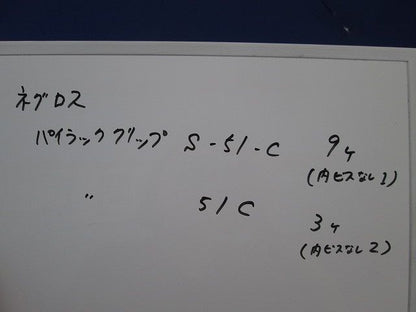 ネグロス
パイラッククリップ S-51-C 9ヶ
(内ビスなし1)
〃 51C 3ヶ
(内ビスなし2)